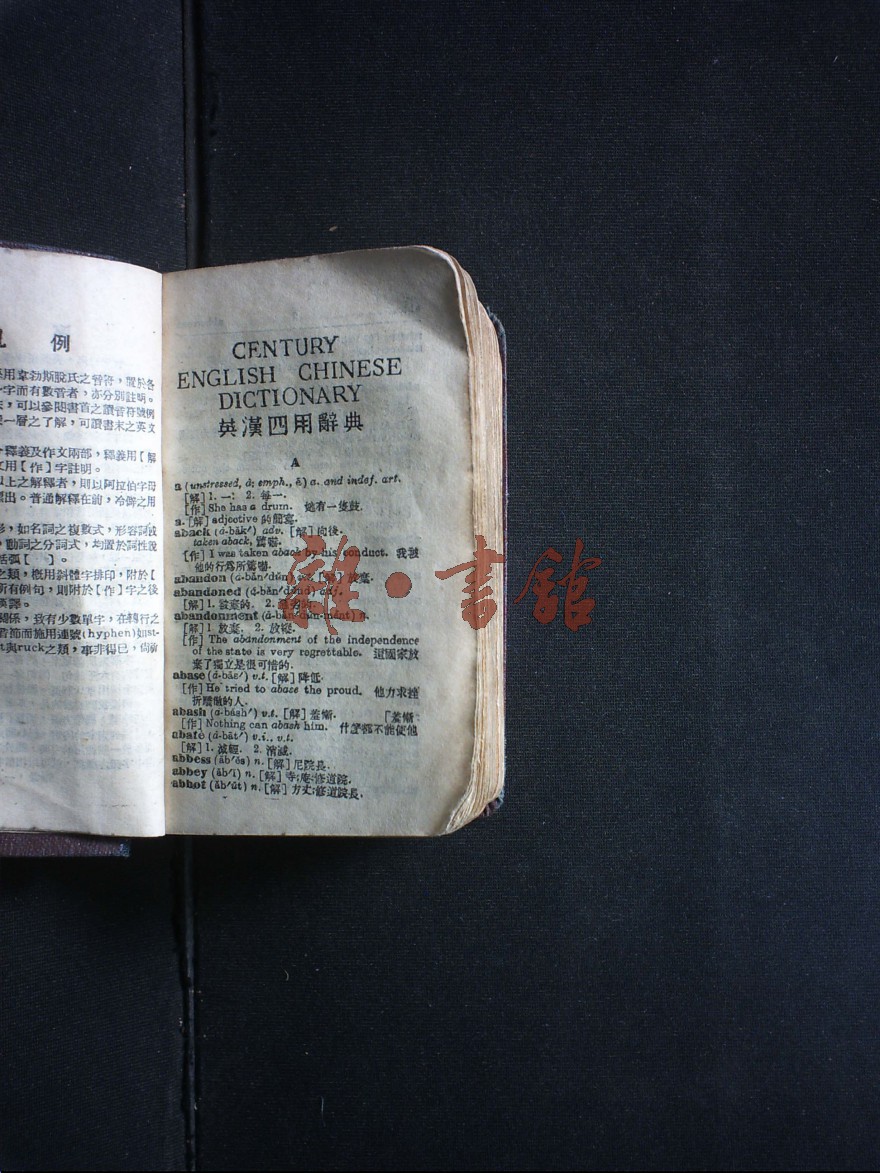 例
用韋勃斯脫氏之音符，置於各
一字而有數音者，亦分別註明。
可以參閱書首之讀音符號例
一層之了解，可讀書末之英文
釋義及作文兩部，釋義用【解
文用【作】字註明。
以上之解釋者，則以阿拉伯字母
出。普通解釋在前，冷僻之用
如名詞之複數式，形容詞或
動詞之分詞式，均置於詞性說
括弧【 】。
之類，概用斜體字排印，附於【
所有例句，則附於【作】字之後
英譯。
關係，致有少數單字，在轉行之
音節而施用連號(hyphen)如st-
t與ruck之類，事非得已，尙祈
CENTURY
ENGLISH CHINESE
DICTIONARY
英漢四用辭典
A
a (unstressed, ȧ; emph., ā) a. and indef. art.
[解] 1. 一; 2. 每一.
[作] She has a drum. 她有一隻鼓.
a. [解] adjective 的簡寫.
aback (ȧ-băk′) adv. [解] 向後.
taken aback, 驚嚇.
[作] I was taken aback by his conduct. 我被
他的行爲所驚嚇.
abandon (ȧ-băn′dŭn) v.t. [解] 放棄.
abandoned (ȧ-băn′dŭnd) adj.
[解] 1. 放棄的. 2.
abandonment (ȧ-băn′dŭn-mĕnt) n.
[解] 1. 放棄. 2. 放縱.
[作] The abandonment of the independence
of the state is very regrettable. 這國家放
棄了獨立是很可惜的.
abase (ȧ-bās′) v.t. [解] 降低.
[作] He tried to abace the proud. 他力求挫
折驕傲的人.
abash (ȧ-băsh′) v.t. [解] 羞慚. 「羞慚.
[作] Nothing can abash him. 什麼都不能使他
abate (ȧ-bāt′) v.i., v.t.
[解] 1. 減輕. 2. 消滅.
abbess (ăb′ĕs) n. [解] 尼院長.
abbey (ăb′ĭ) n. [解] 寺;庵;修道院.
abbot (ăb′ŭt) n. [解] 方丈;修道院長.
雜·書館